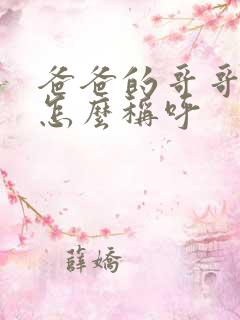 爸爸的哥哥
怎麼稱呼
薛嬌